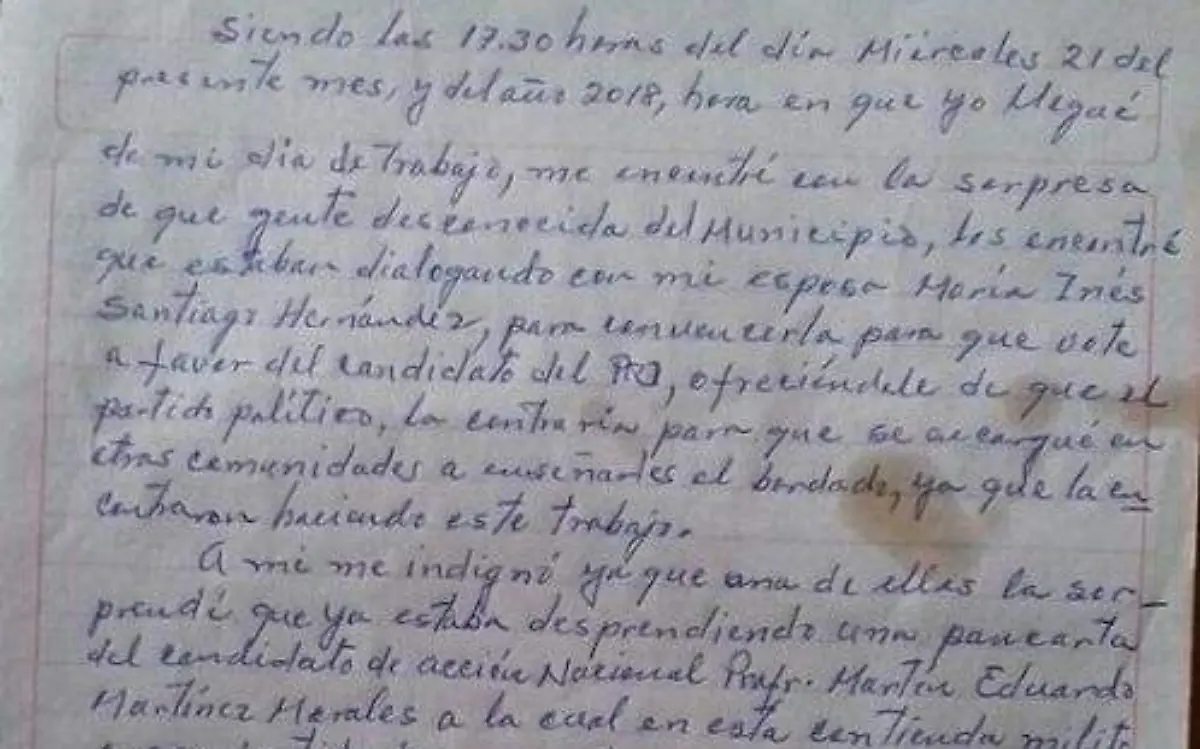 Siendo las 17.30 horas del día Miércoles 21 del
presente mes, y del año 2018, hora en que yo llegué
de mi día de trabajo, me encontré con la sorpresa
de que gente desconocida del Municipio, los encontré
que estaban dialogando con mi esposa María Inés
Santiago Hernández, para convencerla para que vote
a favor del candidato del, ofreciéndole de que el
partido político, la contraría para que se acerqué en
otras comunidades a enseñarles el bordado, ya que la en
contraron haciendo este trabajo.
A mí me indignó ya que una de ellas la sor-
prendí que ya estaba desprendiendo una pancarta
del candidato de acción Nacional Profr. Martín Eduardo
Martínez Morales a la cual en esta contienda milito